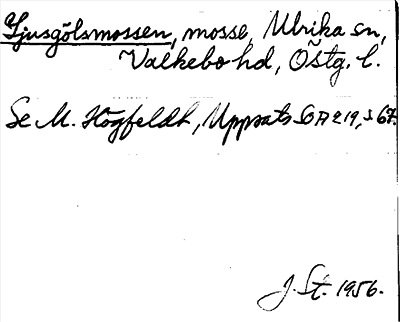 Ljusgölsmossen, mosse, Ulrika sn,
Valkebo hd, Östg. l.
Se M. Högfeldt, Uppsats SOA 219, s 67.
J. St. 1956.